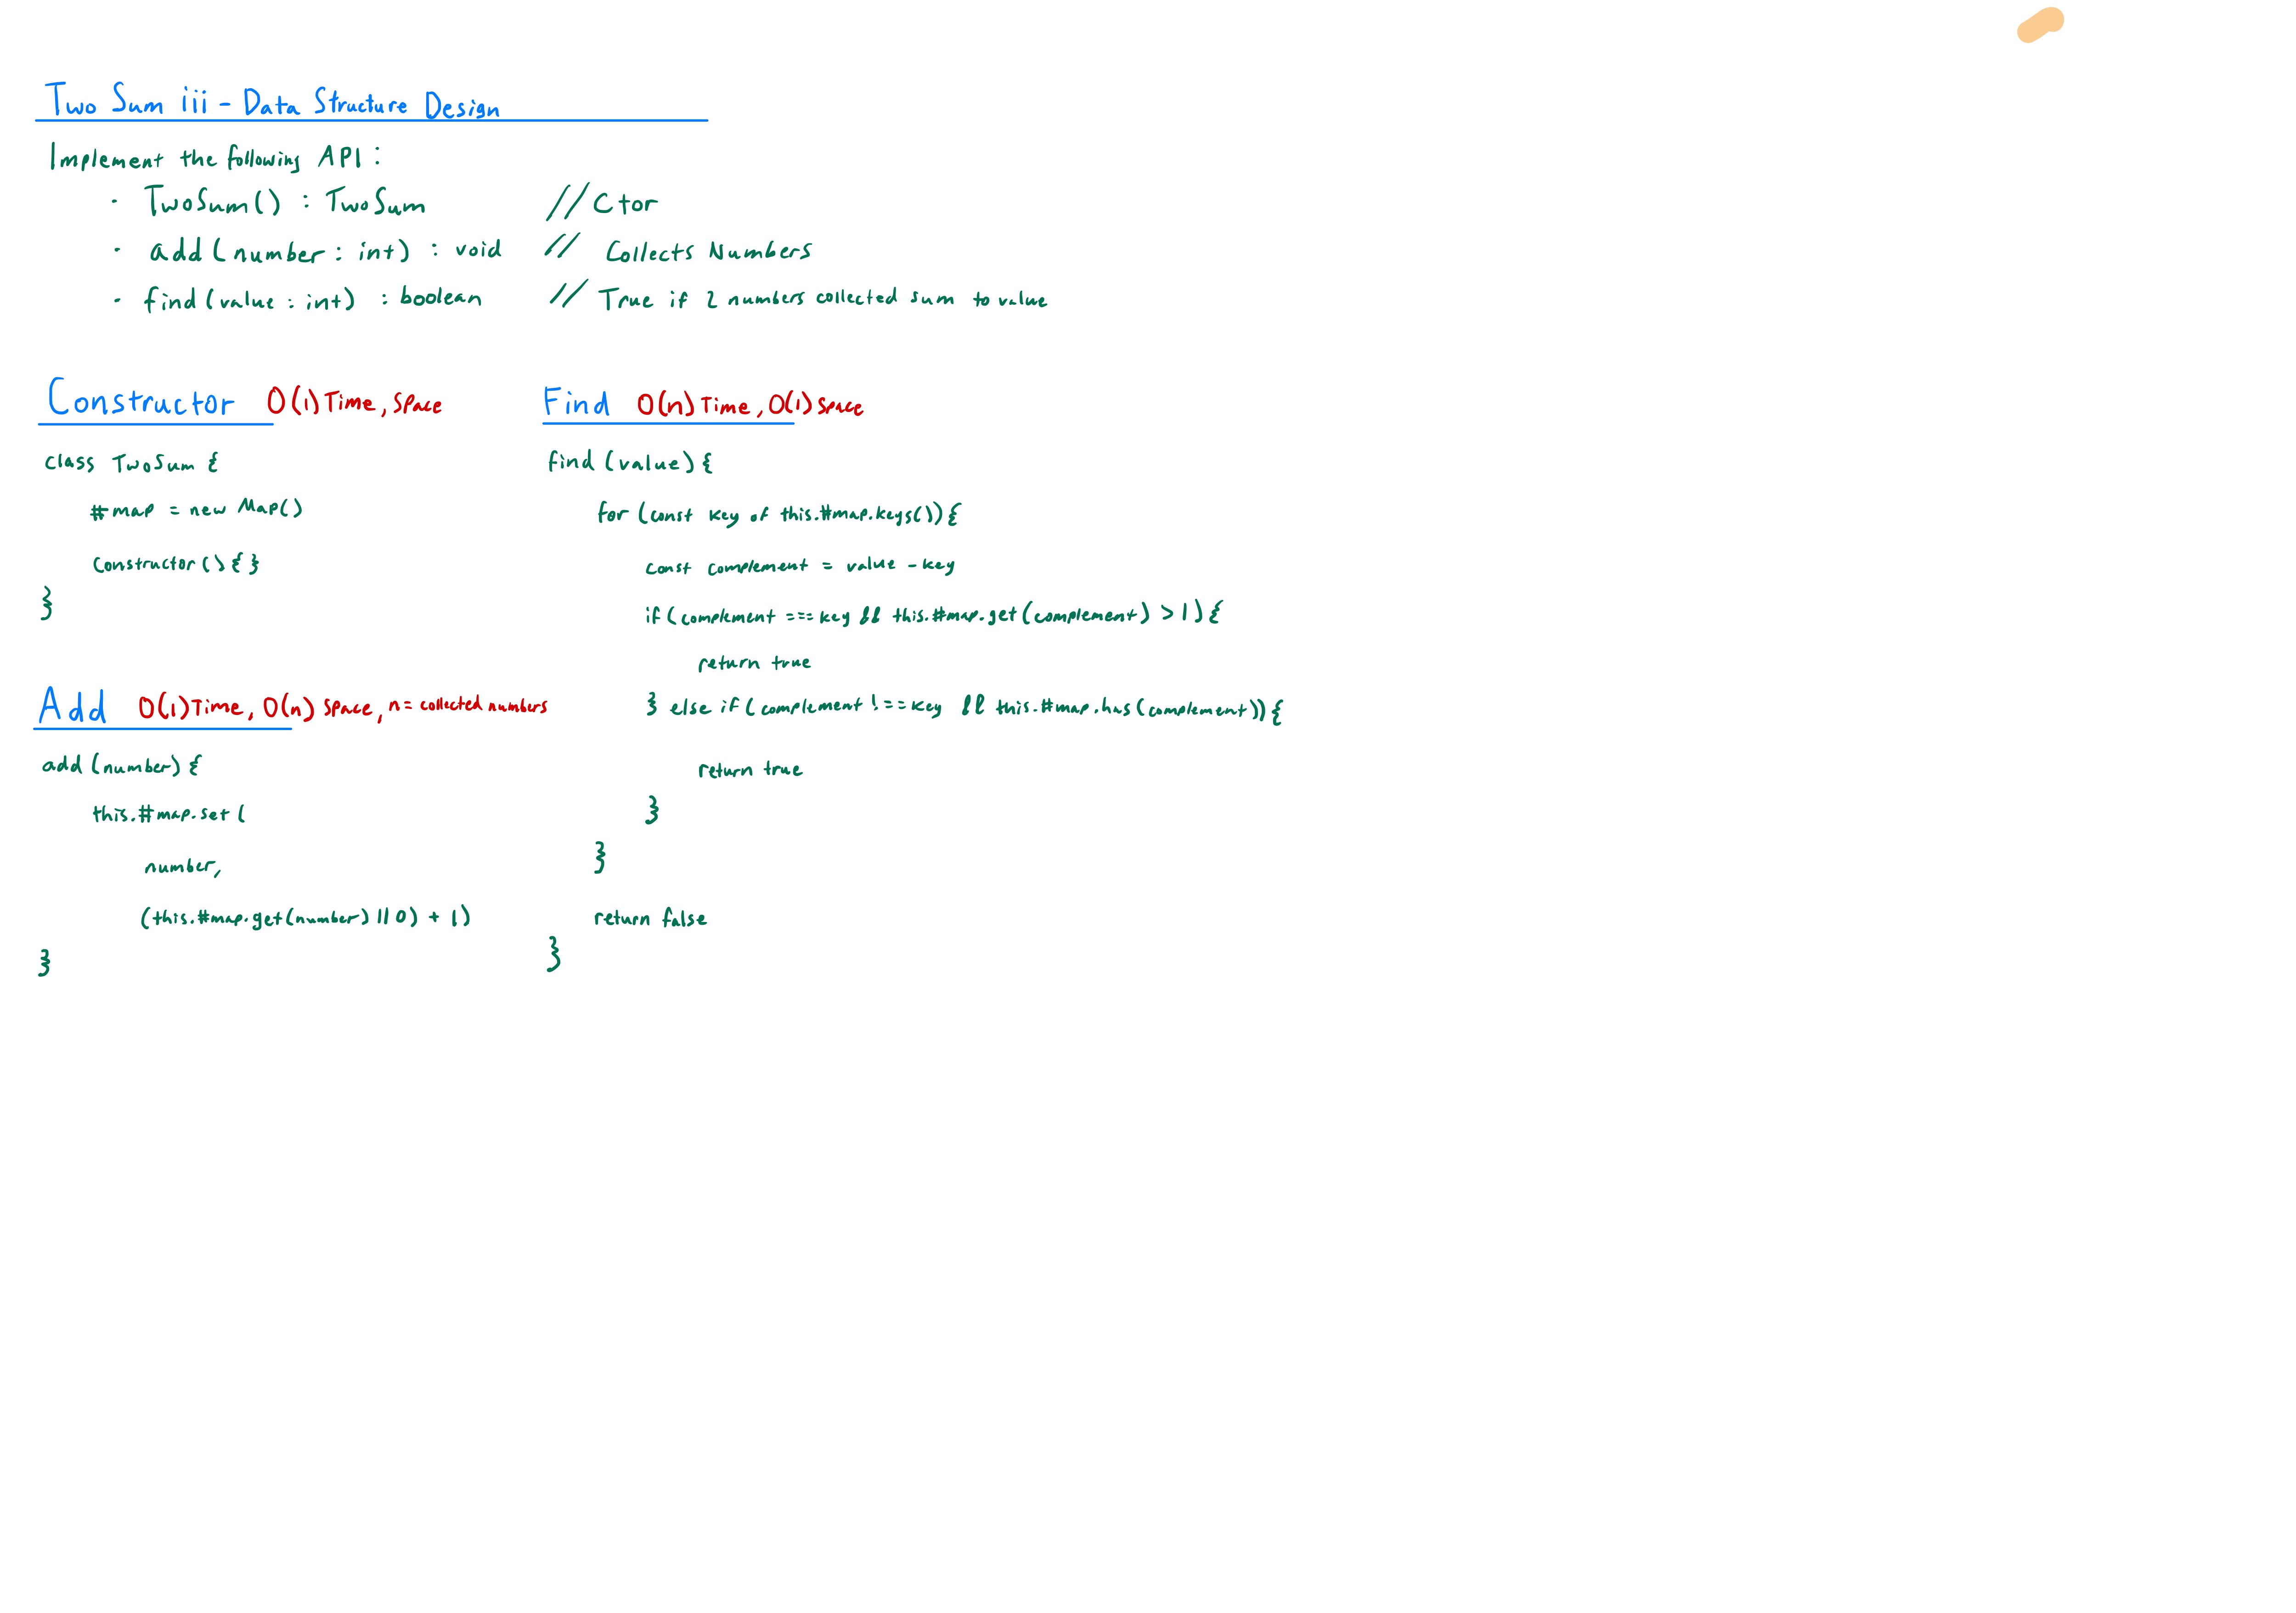 Two Sum iii - Data Structure Design
Implement the following API:
· TwoSum() : TwoSum // Ctor
· add(number: int) : void // Collects Numbers
· find(value: int) : boolean // True if 2 numbers collected sum to value
Constructor O(1) Time, Space
class TwoSum {
#map = new Map()
Constructor() { }
}
Add O(1) Time, O(n) Space, n = collected numbers
add(number) {
this.#map.set(
number,
(this.#map.get(number) || 0) + 1)
}
Find O(n) Time, O(1) Space
find(value) {
for (const key of this.#map.keys()) {
const complement = value - key
if (complement === key && this.#map.get(complement) > 1) {
return true
} else if (complement !== key && this.#map.has(complement)) {
return true
}
}
return false
}